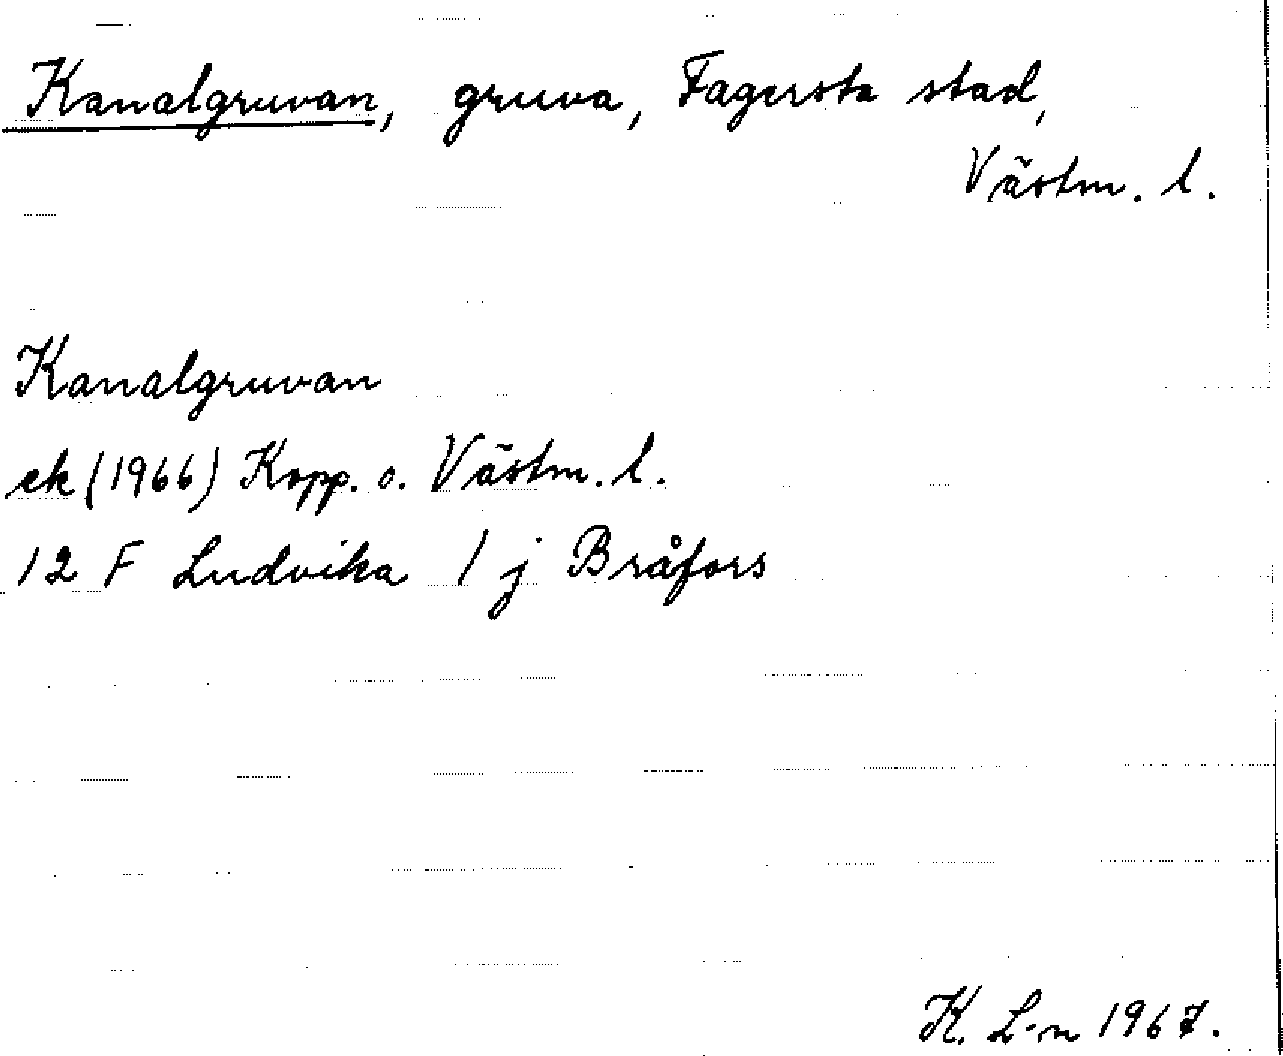 Kanalgruvan, gruva, Fagersta stad,
Västm. l.
Kanalgruvan
ek (1966) Kopp. o. Västm. l.
12 F Ludvika 1 j Bråfors
K. L-n 1967.